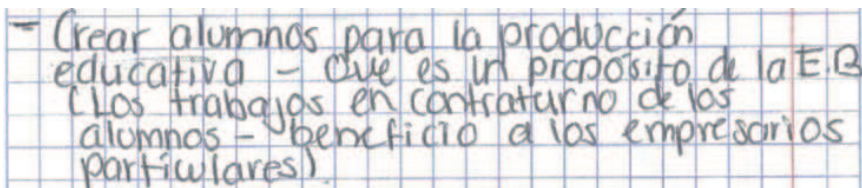 - Crear alumnos para la producción
educativa - Que es un proposito de la E.B
(Los trabajos en contraturno de los
alumnos - beneficio a los empresarios
particulares)